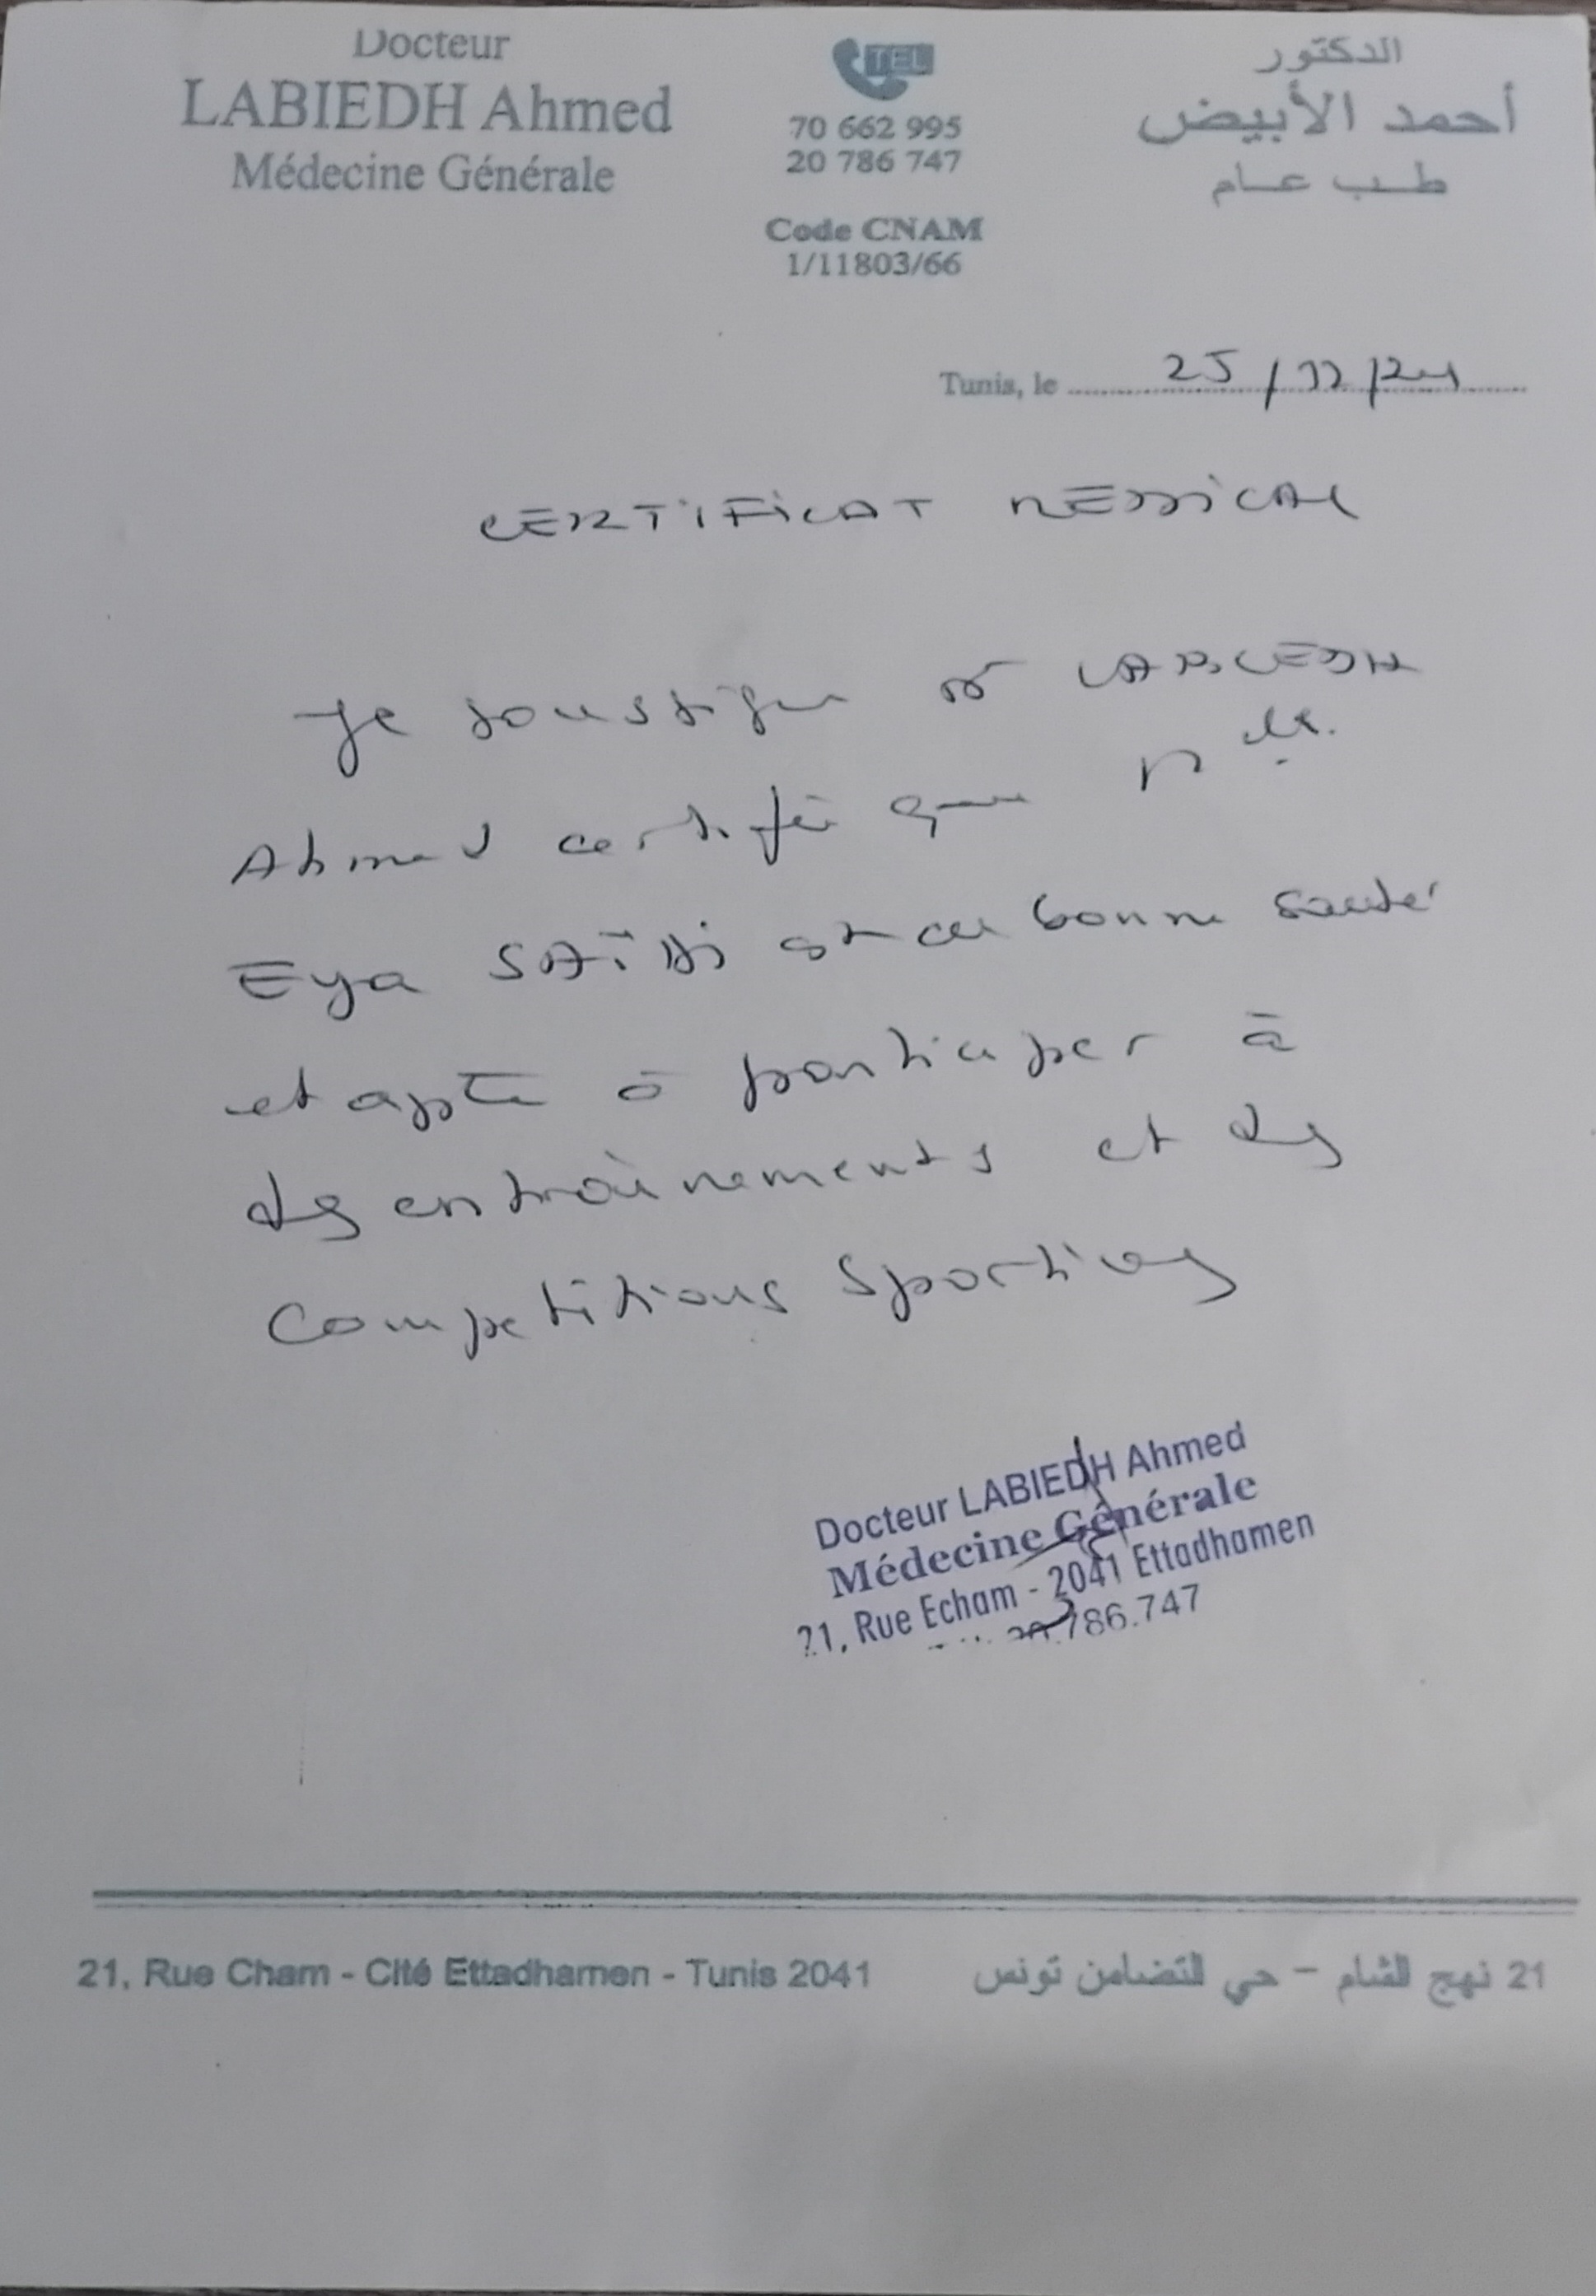 Docteur
LABIEDH Ahmed
Médecine Générale
TEL
70 662 995
20 786 747
Code CNAM
1/11803/66
الدكتور
أحمد الأبيض
طب عام
Tunis, le 25/12/24
CERTIFICAT MEDICAL
Je soussigné Dr LABIEDH
Ahmed certifie que Mlle.
Eya SAÏDI est en bonne santé
et apte à participer à
des entraînements et des
compétitions sportives
Docteur LABIEDH Ahmed
Médecine Générale
21, Rue Echam - 2041 Ettadhamen
20.786.747
21, Rue Cham - Cité Ettadhamen - Tunis 2041
21 نهج الشام – حي التضامن تونس